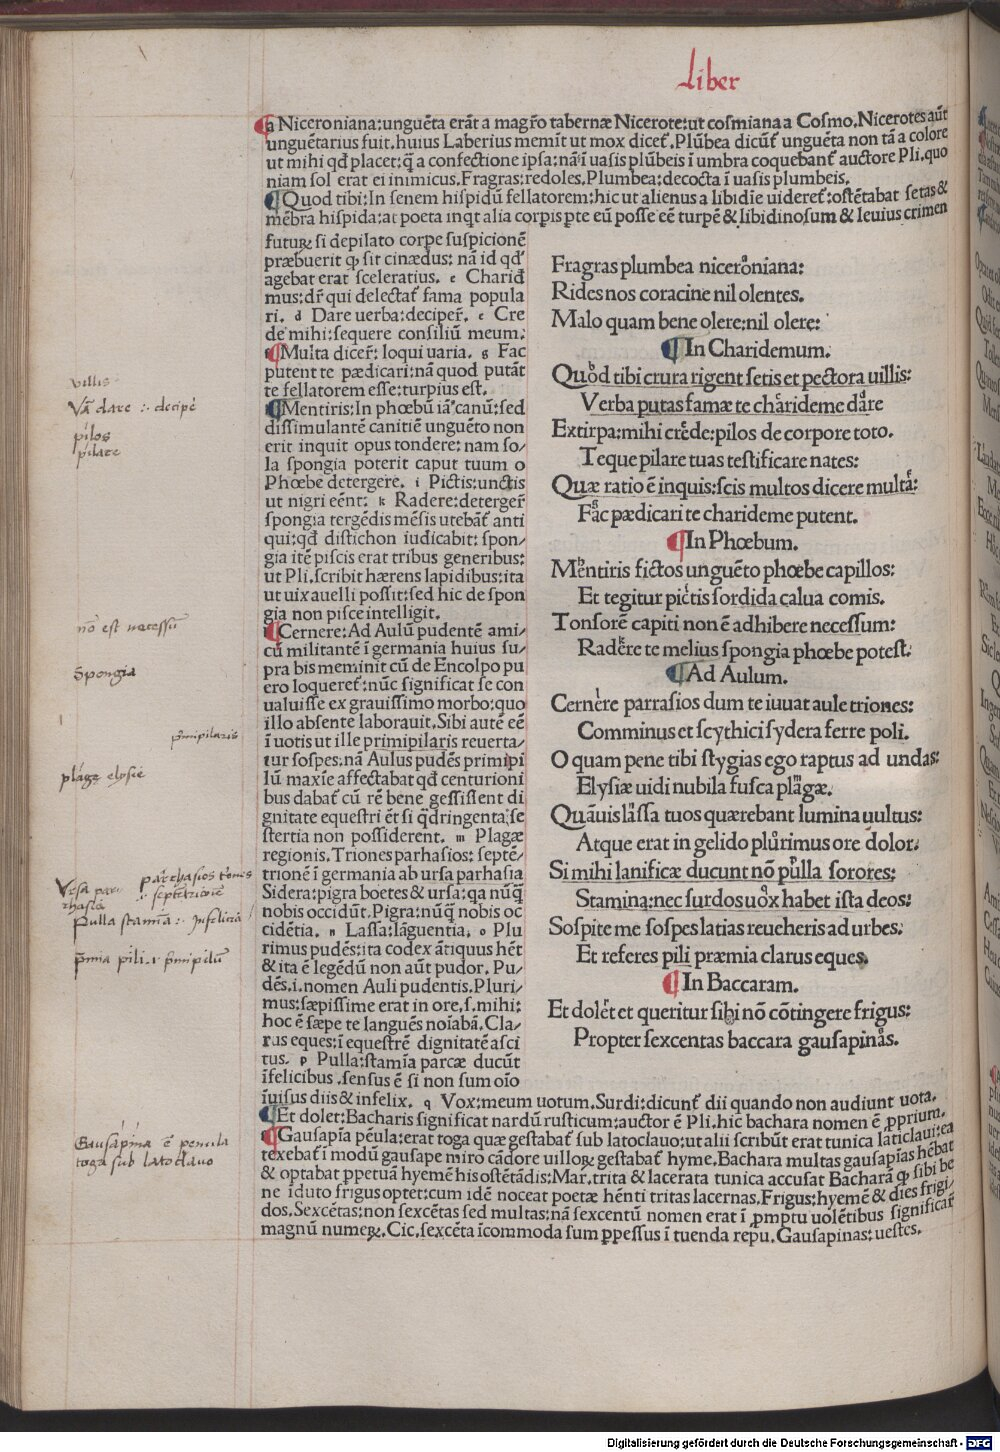 Liber
a Niceroniana:unguēta erāt a magr̄o tabernæ Nicerote:ut cosmiana a Cosmo.Nicerotes aūt
unguētarius fuit.huius Laberius memīt ut mox dicet̄.Plūbea dicūt̄ unguēta non tā a colore
ut mihi qđ placet:q̄ a confectione ipsa:nā ī uasis plūbeis ī umbra coquebant̄ auctore Pli.quo
niam sol erat ei inimicus.Fragras:redoles.Plumbea:decocta ī uasis plumbeis.
Quod tibi:In senem hispidū fellatorem:hic ut alienus a libidīe uideret̄:ostētabat setas &
mēbra hispida:at poeta inqt alia corpis pte eū posse eē turpē & libidinosum & leuius crimen
futuꝝ si depilato corpe suspicionē
præbuerit ꝙ sit cinædus: nā id qđ
agebat erat sceleratius. c Charid
mus:dr̄ qui delectat̄ fama popula
ri. d Dare uerba:deciper̄. e Cre
de mihi:sequere consiliū meum.
Multa dicer̄: loqui uaria. g Fac
putent te pædicari:nā quod putāt
te fellatorem esse:turpius est.
Mentiris:In phœbū iā canū:sed
dissimulantē canitiē unguēto non
erit inquit opus tondere: nam so/
la spongia poterit caput tuum o
Phœbe detergere. i Pictis:unctis
ut nigri eēnt. k Radere:deterger̄
spongia tergēdis mēsis utebāt̄ anti
qui:qđ distichon iudicabit: spon/
gia itē piscis erat tribus generibus:
ut Pli.scribit hærens lapidibus:ita
ut uix auelli possit:sed hic de spon
gia non pisce intelligit.
Cernere:Ad Aulū pudentē ami/
cū militantē ī germania huius su/
pra bis meminit cū de Encolpo pu
ero loqueret̄:nūc significat se con
ualuisse ex grauissimo morbo:quo
illo absente laborauit.Sibi autē eē
ī uotis ut ille primipilaris reuerta/
tur sospes:nā Aulus pudēs primipi
lū maxīe affectabat qđ centurioni
bus dabat̄ cū rē bene gessissent di
gnitate equestri ēt si q̄dringenta:se
stertia non possiderent. m Plagæ
regionis.Triones parhasios: septē/
trionē ī germania ab ursa parhasia
Sidera:pigra boetes & ursa:qa nūq̄
nobis occidūt.Pigra:nūq̄ nobis oc
cidētia. n Lassa:lāguentia. o Plu
rimus pudēs:ita codex ātiquus hēt
& ita ē legēdū non aūt pudor. Pu/
dēs.i.nomen Auli pudentis.Pluri/
mus:sæpissime erat in ore.s.mihi:
hoc ē sæpe te languēs noīabā.Cla/
rus eques:ī equestrē dignitatē asci
tus. p Pulla:stamīa parcæ ducūt
īfelicibus.sensus ē si non sum oīo
īuisus diis & infelix. q Vox:meum uotum.Surdi:dicunt̄ dii quando non audiunt uota.
Et dolet:Bacharis significat nardū rusticum:auctor ē Pli.hic bachara nomen ē pprium.
Gausapīa pēula:erat toga quæ gestabat̄ sub latoclauo:ut alii scribūt erat tunica laticlaui:ea
texebat̄ ī modū gausape miro cādore uilloꝝ gestabat̄ hyme.Bachara multas gausapīas hēbat
& optabat ppetuā hyemē his ostētādis:Mar.trita & lacerata tunica accusat Bacharā ꝙ sibi be
ne īduto frigus optet:cum idē noceat poetæ hēnti tritas lacernas.Frigus:hyemē & dies frigi/
dos.Sexcētas:non sexcētas sed multas:nā sexcentū nomen erat ī pmptu uolētibus significar̄
magnū numeꝝ.Cic.sexcēta īcommoda sum ppessus ī tuenda repu.Gausapinas:uestes.
Fragras plumbea niceroniana:
Rides nos coracine nil olentes.
Malo quam bene olere:nil olere:
In Charidemum.
Quod tibi crura rigent setis et pectora uillis:
Verba putas famæ te charideme dare
Extirpa:mihi crede:pilos de corpore toto.
Teque pilare tuas testificare nates:
Quæ ratio ē inquis:scis multos dicere multa:
Fac pædicari te charideme putent.
In Phœbum.
Mentiris fictos unguēto phœbe capillos:
Et tegitur pictis sordida calua comis.
Tonsorē capiti non ē adhibere necessum:
Radere te melius spongia phœbe potest.
Ad Aulum.
Cernere parrasios dum te iuuat aule triones:
Comminus et scythici sydera ferre poli.
O quam pene tibi stygias ego raptus ad undas:
Elysiæ uidi nubila fusca plagæ.
Quāuis lassa tuos quærebant lumina uultus:
Atque erat in gelido plurimus ore dolor.
Si mihi lanificæ ducunt nō pulla sorores:
Stamina:nec surdos uox habet ista deos:
Sospite me sospes latias reueheris ad urbes:
Et referes pili præmia clarus eques.
In Baccaram.
Et dolet et queritur sibi nō cōtingere frigus:
Propter sexcentas baccara gausapinas.
villis
Vā dare :· decipē
pilos
pilare
nō est necessū
Spongia
pīmipilaris
plagę elysie
Vrsa par
rhasia
parrhasios
septētrionē
Pulla stamīa :· Infelicia
pīmia pili .i. pīmipilū
Gausapina ē penula
toga sub latoclauo
Digitalisierung gefördert durch die Deutsche Forschungsgemeinschaft - DFG